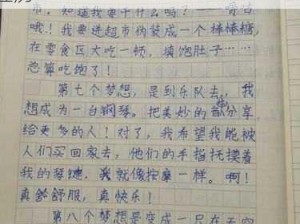 市，知道我要干什么吗？——告诉
哦！我要进超市伪装成一个棒棒糖，
在零食区大吃一顿，填饱肚子……
总算吃饱了！
第七个梦想，是到乐队去，我
想成为一台钢琴。把美妙的都分享
给更多的人！对了，我希望我能被
人们买回家去，他们的手指托摸着
我的琴键，我就像按摩一样。啊！
真舒服，真快乐！
第八个梦想是变成一只在天空